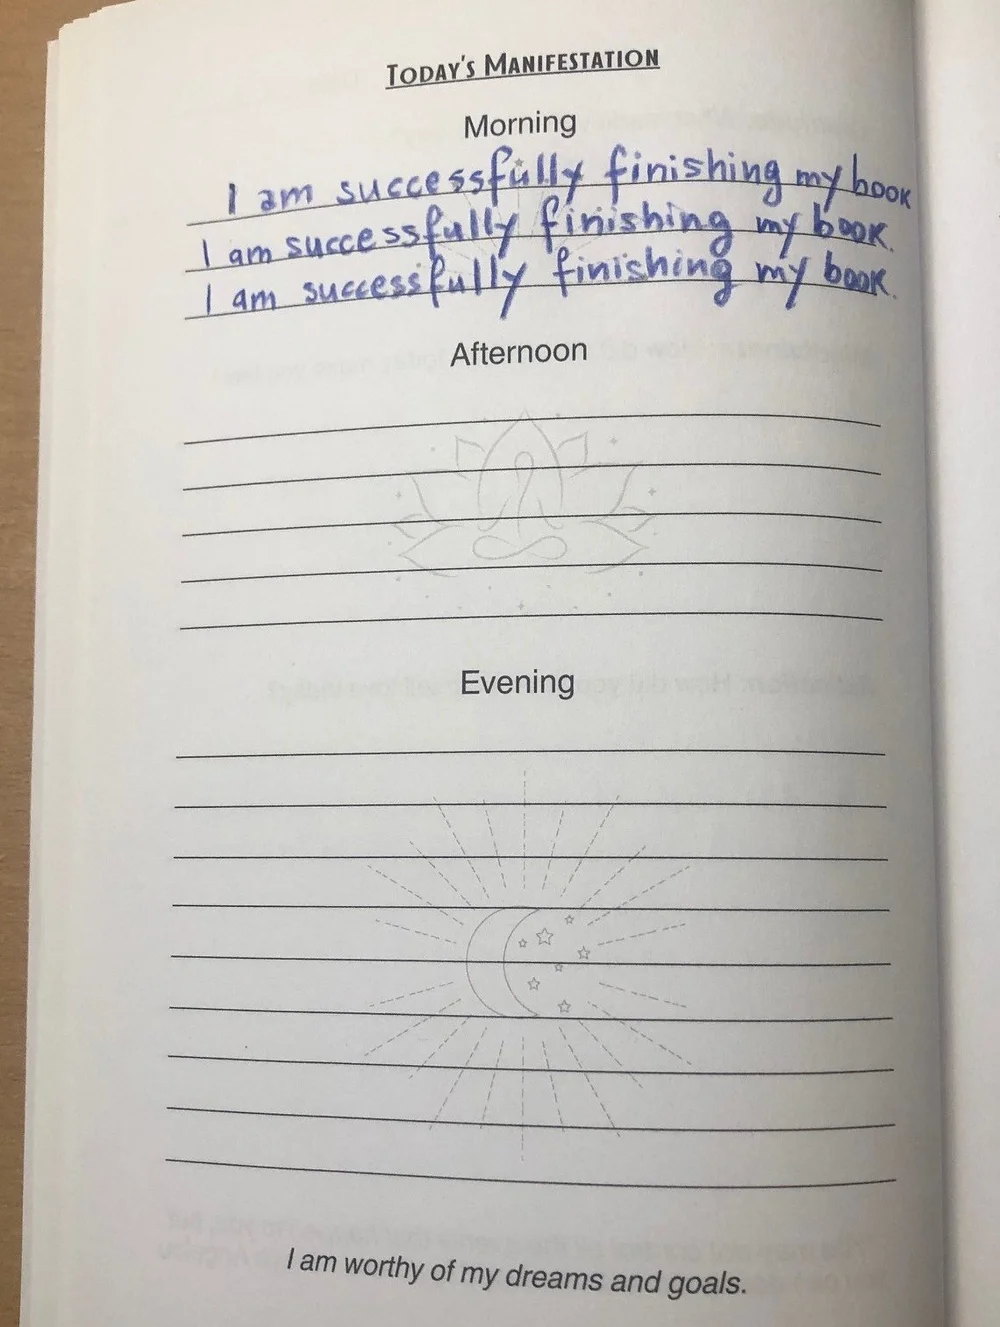 TODAY'S MANIFESTATION
Morning
I am successfully finishing my book
I am successfully finishing my book.
I am successfully finishing my book.
Afternoon
Evening
I am worthy of my dreams and goals.